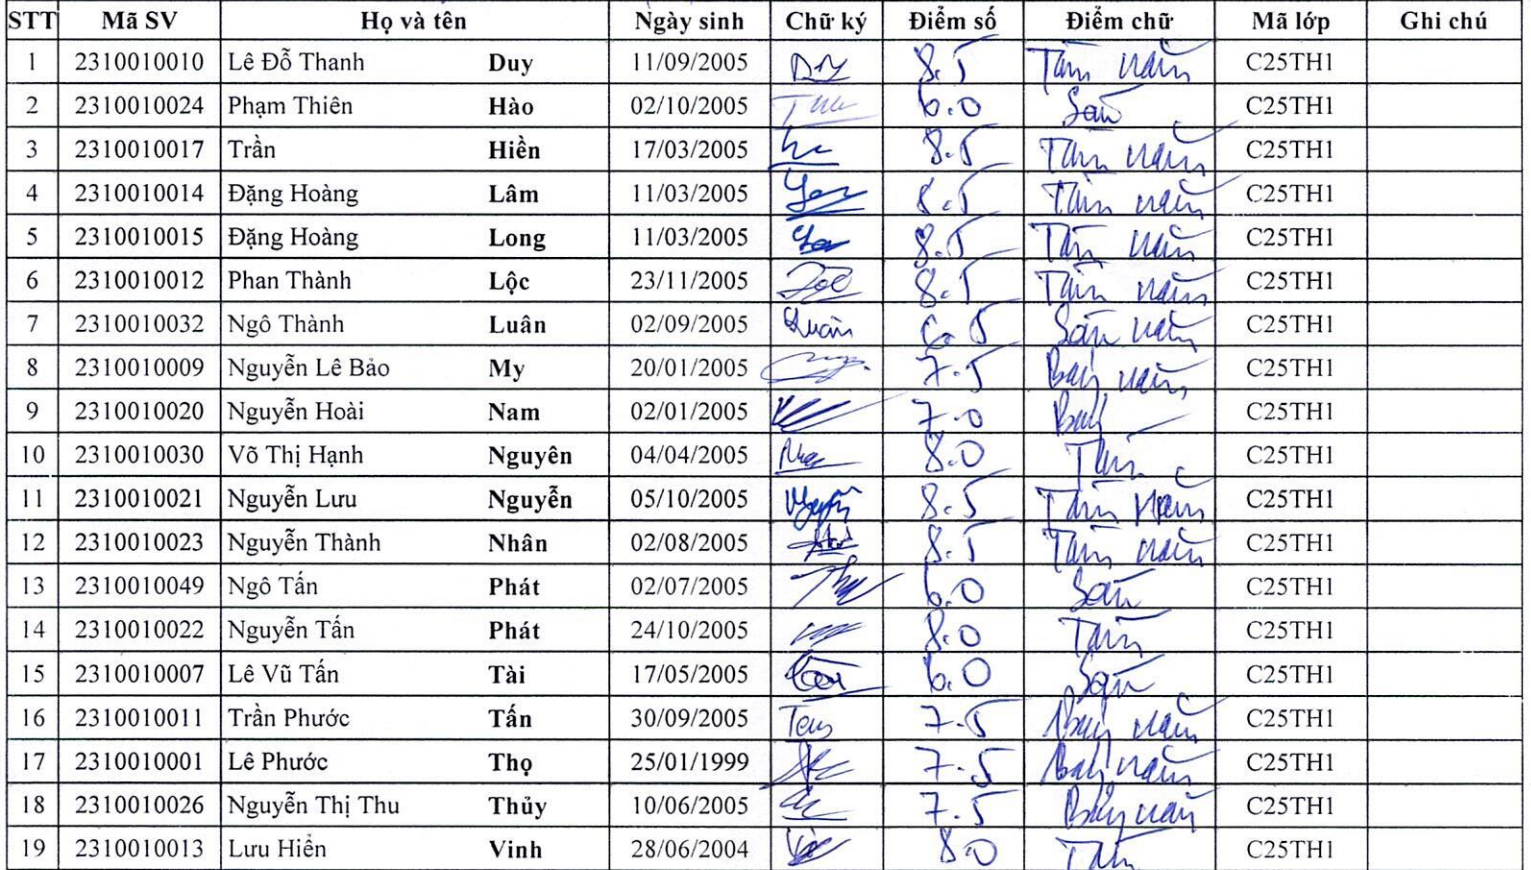 STT Mã SV Họ và tên Ngày sinh Chữ ký Điểm số Điểm chữ Mã lớp Ghi chú
1 2310010010 Lê Đỗ Thanh Duy 11/09/2005 Duy 8.5 Tám năm C25TH1
2 2310010024 Phạm Thiên Hào 02/10/2005 6.0 Sáu C25TH1
3 2310010017 Trần Hiền 17/03/2005 8.5 Tám năm C25TH1
4 2310010014 Đặng Hoàng Lâm 11/03/2005 8.5 Tám năm C25TH1
5 2310010015 Đặng Hoàng Long 11/03/2005 8.5 Tám năm C25TH1
6 2310010012 Phan Thành Lộc 23/11/2005 8.5 Tám năm C25TH1
7 2310010032 Ngô Thành Luân 02/09/2005 Luân 6.5 Sáu năm C25TH1
8 2310010009 Nguyễn Lê Bảo My 20/01/2005 7.5 Bảy năm C25TH1
9 2310010020 Nguyễn Hoài Nam 02/01/2005 7.0 Bảy C25TH1
10 2310010030 Võ Thị Hạnh Nguyên 04/04/2005 8.0 Tám C25TH1
11 2310010021 Nguyễn Lưu Nguyễn 05/10/2005 8.5 Tám năm C25TH1
12 2310010023 Nguyễn Thành Nhân 02/08/2005 8.5 Tám năm C25TH1
13 2310010049 Ngô Tấn Phát 02/07/2005 6.0 Sáu C25TH1
14 2310010022 Nguyễn Tấn Phát 24/10/2005 8.0 Tám C25TH1
15 2310010007 Lê Vũ Tấn Tài 17/05/2005 6.0 Sáu C25TH1
16 2310010011 Trần Phước Tấn 30/09/2005 7.5 Bảy năm C25TH1
17 2310010001 Lê Phước Thọ 25/01/1999 7.5 Bảy năm C25TH1
18 2310010026 Nguyễn Thị Thu Thủy 10/06/2005 7.5 Bảy năm C25TH1
19 2310010013 Lưu Hiển Vinh 28/06/2004 8.0 Tám C25TH1